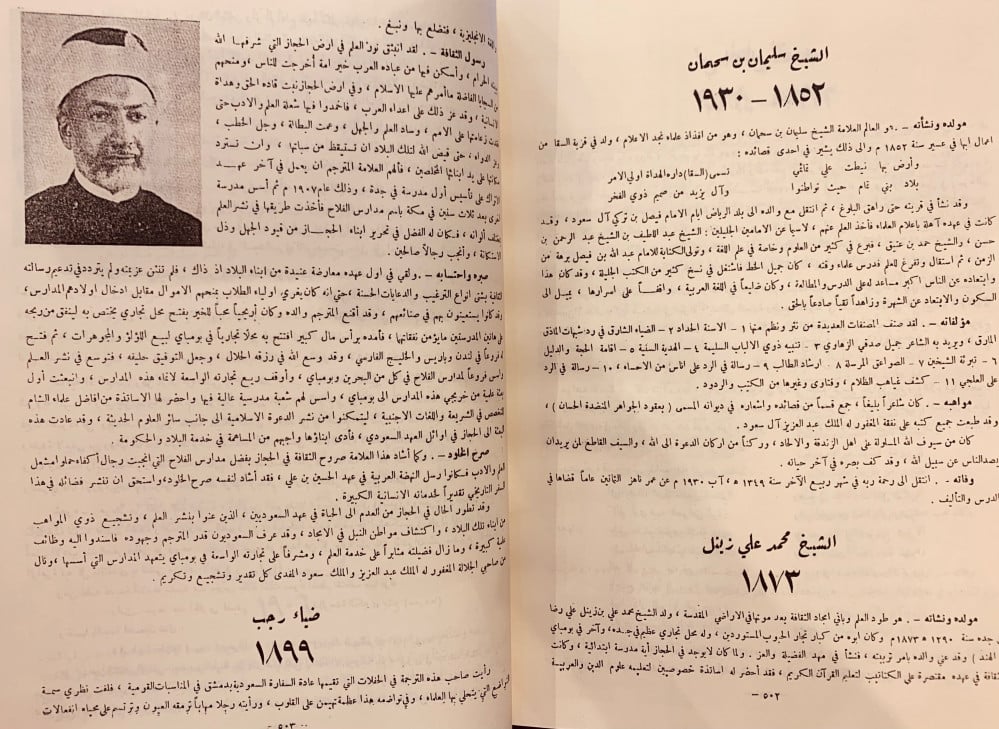 الشيخ سليمان بن سحمان
١٨٥٢ – ١٩٣٠
مولده ونشأته – . هو العالم العلامة الشيخ سليمان بن سحمان ، وهو من افذاذ علماء نجد الاعلام ، ولد في قرية السقا من
اعمال ابها في عسير سنة ١٨٥٢ م والى ذلك يشير في احدى قصائده :
وأرض بها نيطت علي تمائمي تسمى (السقا) دار الهداة اولي الامر
بلاد بني تمام حيث تواطنوا وآل يزيد من صميم ذوي الفخر
وقد نشأ في قريته حتى راهق البلوغ ، ثم انتقل مع والده الى بلد الرياض ايام الامام فيصل بن تركي آل سعود ، وقد
كانت في عهده آهلة باعلام العلماء فأخذ العلم عنهم ، لاسيما عن الامامين الجليلين : الشيخ عبد اللطيف بن الشيخ عبد الرحمن بن
حسن ، والشيخ حمد بن عتيق ، فبرع في كثير من العلوم وخاصة في علم اللغة ، وتولى الكتابة للامام عبد الله بن فيصل برهة من
الزمن ، ثم استقال وتفرغ للعلم فدرس علماء وقته ، كان جميل الخط فاشتغل في نسخ كثير من الكتب الجليلة ، وقد كان هذا
وابتعاده عن الناس اكبر مساعد له على الدرس والمطالعة ، وكان ضليعاً في اللغة العربية ، واقفاً على اسرارها ، يميل الى
السكون والابتعاد عن الشهرة وزاهداً تقياً صادعاً بالحق .
مؤلفاته – . لقد صنف المصنفات العديدة من نثر ونظم منها ١ – الاسنة الحداد ٢ – الضياء الشارق في رد شبهات الماذق
المارق ، ويريد به الشاعر جميل صدقي الزهاوي ٣ – تنبيه ذوي الالباب السليمة ٤ – الهدية السنية ٥ – اقامة الحجة والدليل
٦ – تبرئة الشيخين ٧ – الصواعق المرسلة ٨ – ارشاد الطالب ٩ – رسالة في الرد على اناس من الاحساء ، ١٠ – رسالة في الرد
على العلجي ١١ – كشف غياهب الظلام ، وفتاوى وغيرها من الكتب والردود .
مواهبه – . كان شاعراً بليغاً ، جمع قسماً من قصائده واشعاره في ديوانه المسمى ( بعقود الجواهر المنضدة الحسان ) ،
وقد طبعت جميع كتبه على نفقة المغفور له الملك عبد العزيز آل سعود .
كان من سيوف الله المسلولة على اهل الزندقة والالحاد ، وركناً من اركان الدعوة الى الله ، والسيف القاطع لمن يريدان
يصد الناس عن سبيل الله ، وقد كف بصره في آخر حياته .
وفاته – . انتقل الى رحمة ربه في شهر ربيع الآخر سنة ١٣٤٩ هـ ، آب ١٩٣٠ م عن عمر ناهز الثمانين عاماً قضاها في
الدرس والتأليف .
الشيخ محمد علي زينل
١٨٧٣
مولده ونشأته – . هو طود العلم وباني امجاد الثقافة بعد موتها في الاراضي المقدسة ، ولد الشيخ محمد علي بن زينل علي رضا
جده سنة ١٢٩٠ هـ ١٨٧٣م وكان ابوه من كبار تجار الحبوب المستوردين ، وله محل تجاري عظيم في جده ، وآخر في بومباي
( الهند ) وقد عني والده بامر تربيته ، فنشأ في مهد الفضيلة والعز . ولما كان لا يوجد في الحجاز أية مدرسة ابتدائية ، وكانت
ثقافة في عهده مقتصرة على الكتاتيب لتعليم القرآن الكريم ، فقد أحضر له اساتذة خصوصيين لتعليمه علوم الدين والعربية
– ٥٠٢ –
الانجليزية ، فتضلع بها ونبغ .
رسول الثقافة – . لقد انبثق نور العلم في ارض الحجاز التي شرفها الله
الحرام ، وأسكن فيها من عباده العرب خير امة أخرجت للناس ، ومنحهم
السجايا الفاضلة ما أمرهم عليها الاسلام ، وفي ارض الحجاز نبت قادة الحق وهداة
الانسانية ، وقد عز ذلك على اعداء العرب ، فاخمدوا فيها شعلة العلم والادب حتى
زعامتها على الامم ، وساد العلم والجهل ، وعمت البطالة ، وجل الخطب ،
الدواء ، حتى قيض الله لتلك البلاد ان تستيقظ من سباتها ، وان تسترد
مكانتها على يد ابنائها المخلصين ، فألهم العلامة المترجم ان يعمل في آخر عهد
الاتراك على تأسيس أول مدرسة في جدة ، وذلك عام ١٩٠٧ م ثم أسس مدرسة
اخرى بعد ثلاث سنين في مكة باسم مدارس الفلاح فأخذت طريقها في نشر العلم
ألوانه ، فكان له الفضل في تحرير ابناء الحجاز من قيود الجهل وذل
الاستكانة ، وأنجب رجالاً صالحين .
صبره واحتسابه – . ولقي في اول عهده معارضة عنيدة من ابناء البلاد اذ ذاك ، فلم تنثن عزيمته ولم يتردد في تدعيم رسالته
بشتى انواع الترغيب والدعايات الحسنة ، حتى انه كان يغري اولياء الطلاب بمنحهم الاموال مقابل ادخال اولادهم المدارس ،
كانوا يستعينون بهم في صنائعهم ، وقد أقنع المترجم والده وكان أريحياً محباً للخير بفتح محل تجاري يختص به لينفق من ريحه
هاتين المدرستين ما يؤمن نفقاتها ، فأمده برأس مال كبير افتتح به محلاً تجارياً في بومباي لبيع اللؤلؤ والمجوهرات ، ثم فتح
فروعاً في لندن وباريس والخليج الفارسي ، وقد وسع الله في رزقه الحلال ، وجعل التوفيق حليفه ، فتوسع في نشر العلم
فروعاً لمدارس الفلاح في كل من البحرين وبومباي ، وأوقف ريع تجارته الواسعة لانماء هذه المدارس ، وانبعثت أول
علمية من خريجي هذه المدارس الى بومباي ، واسس لهم شعبة مدرسية عالية فيها واحضر لها الاساتذة من افاضل علماء الشام
للتخصص في الشريعة واللغات الاجنبية ، ليتمكنوا من نشر الدعوة الاسلامية الى جانب سائر العلوم الحديثة ، وقد عادت هذه
البعثة الى الحجاز في اوائل العهد السعودي ، فأدى ابناؤها واجبهم من المساهمة في خدمة البلاد والحكومة .
صرح الخلود – . وكما أشاد هذا العلامة صروح الثقافة في الحجاز بفضل مدارس الفلاح التي انجبت رجال أكفاء حملوا مشعل
العلم والادب فكانوا رسل النهضة العربية في عهد الحسين بن علي ، فقد أشاد لنفسه صرح الخلود ، واستحق ان ننشر فضائله في هذا
السفر التاريخي تقديراً لخدماته الانسانية الكبيرة .
وقد تطور الحال في الحجاز من العدم الى الحياة في عهد السعوديين ، الذين عنوا بنشر العلم ، وتشجيع ذوي المواهب
من ابناء تلك البلاد ، واكتشاف مواطن النبل في الامجاد ، وقد عرف السعوديون قدر المترجم وجهوده فاسندوا اليه وظائف
كبيرة ، وما زال فضيلته مثابراً على خدمة العلم ، ومشرفاً على تجارته الواسعة في بومباي يتعهد المدارس التي أسسها ، ونال
من صاحبي الجلالة المغفور له الملك عبد العزيز والملك سعود المفدى كل تقدير وتشجيع وتكريم .
ضياء رجب
١٨٩٩
رأيت صاحب هذه الترجمة في الحفلات التي تقيمها عادة السفارة السعودية بدمشق في المناسبات القومية ، فلفت نظري سمة
التواضع التي يتحلى بها العلماء ، وفي تواضعه هذا عظمة تهيمن على القلوب ، ورأيته رجلاً مهاباً ترمقه العيون وترتسم على محياه انفعالات
– ٥٠٣ –